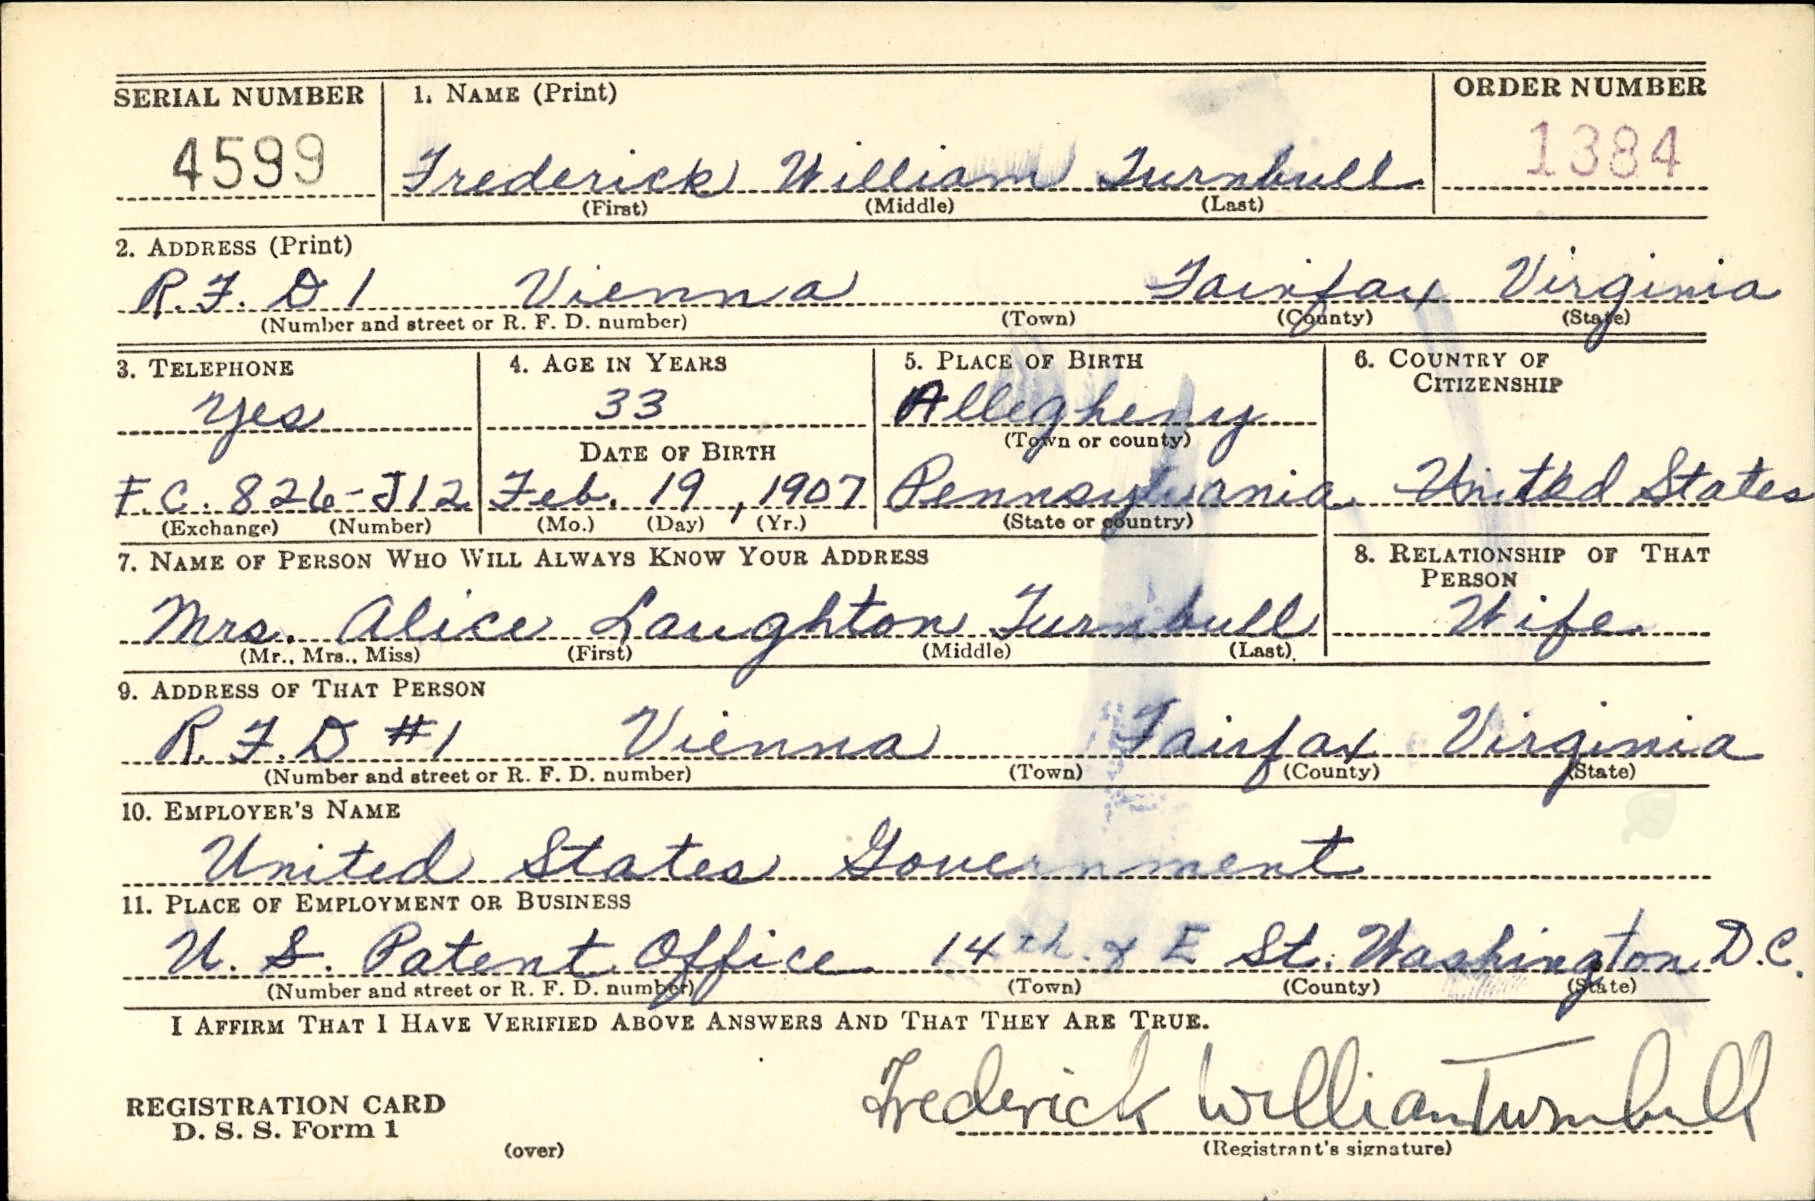 SERIAL NUMBER 1. NAME (Print) ORDER NUMBER
4599 Frederick William Turnbull 1384
(First) (Middle) (Last)
2. ADDRESS (Print)
R. F. D 1 Vienna Fairfax Virginia
(Number and street or R. F. D. number) (Town) (County) (State)
3. TELEPHONE 4. AGE IN YEARS 5. PLACE OF BIRTH 6. COUNTRY OF
CITIZENSHIP
Yes 33 Allegheny
DATE OF BIRTH (Town or county)
F.C. 826-J12 Feb. 19, 1907 Pennsylvania United States
(Exchange) (Number) (Mo.) (Day) (Yr.) (State or country)
7. NAME OF PERSON WHO WILL ALWAYS KNOW YOUR ADDRESS 8. RELATIONSHIP OF THAT
PERSON
Mrs. Alice Laughton Turnbull Wife
(Mr., Mrs., Miss) (First) (Middle) (Last)
9. ADDRESS OF THAT PERSON
R. F. D #1 Vienna Fairfax Virginia
(Number and street or R. F. D. number) (Town) (County) (State)
10. EMPLOYER'S NAME
United States Government
11. PLACE OF EMPLOYMENT OR BUSINESS
U. S. Patent Office 14th. & E St. Washington D.C.
(Number and street or R. F. D. number) (Town) (County) (State)
I AFFIRM THAT I HAVE VERIFIED ABOVE ANSWERS AND THAT THEY ARE TRUE.
Frederick William Turnbull
REGISTRATION CARD
D. S. S. Form 1
(over) (Registrant's signature)